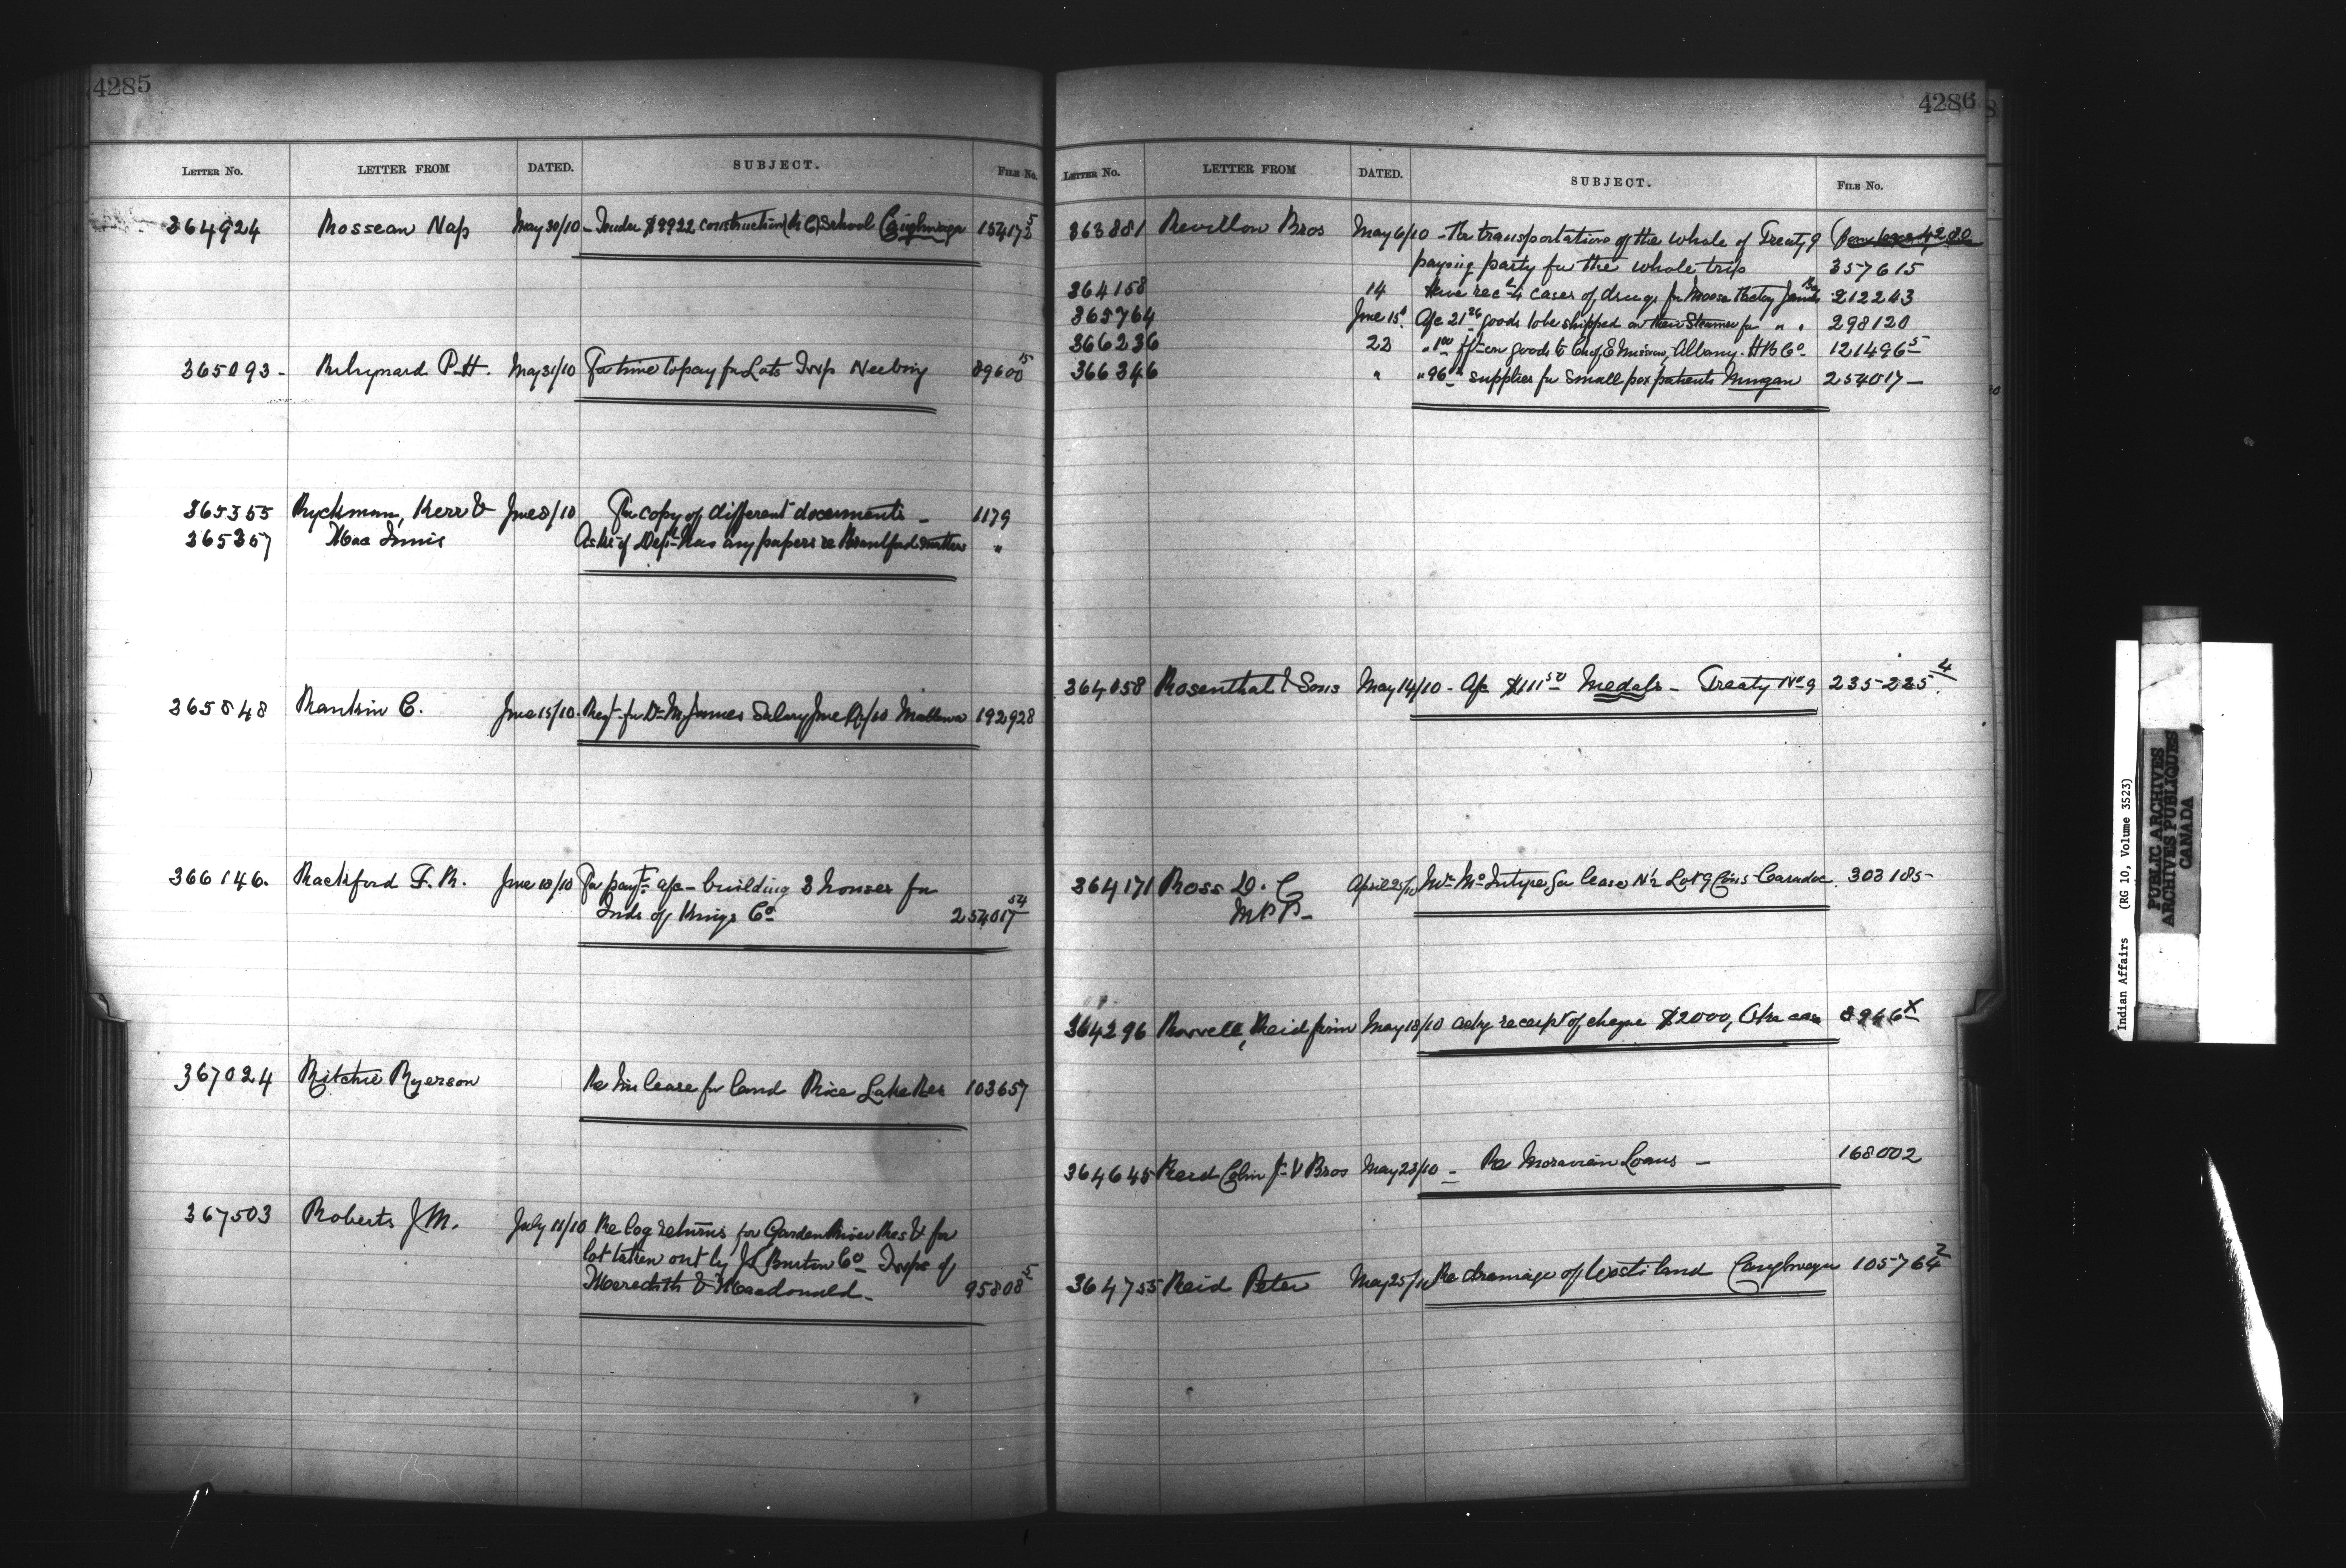 4285
LETTER NO. LETTER FROM DATED. SUBJECT. FILE No.
364924 Rosseau Nap May 30/10 - Tender $8922 construction (R C) School Caughnawaga
365093 - P. H. May 31/10 For time to pay for Lots Twp Neebing 89600 15
365355 Ryckman, Kerr & June 8/10 For copy of different documents - 1179
365357 Mac Innis Asks if Dept has any papers re Brantford matters "
365848 Rankin C. June 15/10 - Reqt for Dr McJames Salary June Qr/10 Mattawa 192928
366146. Rackford F. R. June 18/10 For payt a/c - building 3 houses for
Inds of Kings Co 254017 54
367024 Ritchie Ryerson Re his lease for land Rice Lake Res 103657
367503 Roberts J M. July 11/10 Re log returns for Garden River Res & for
lot taken out by J L Burton Co - Twps of
Meredith & Macdonald - 95808 5
4286
LETTER No. LETTER FROM DATED. SUBJECT. FILE No.
363881 Revillon Bros May 6/10 - Re transportation of the whole of Treaty 9
paying party for the whole trip 357615
364158 14 Have recd 4 cases of drugs for Moose Factory 212243
365764 June 15 A/c 21 goods to be shipped on their Steamer for " " 298120
366236 22 " 1 00 goods to Albany. H B Co 121496 5
366346 " " 96 supplies for small pox patients Mingan 254017 -
364058 Rosenthal & Sons May 14/10 - A/c $111 50 Medals - Treaty No 9 235225 4
364171 Ross D. C April 25/10 Mr McIntyre for lease N½ Lot 9 Con 5 Caradoc 303185 -
M P P -
364296 Reid firm May 18/10 Ackg receipt of cheque $2000, 8966 X
364645 Reid Colin J & V Bros May 23/10 - Re Moravian Loans - 168002
364755 Reid Peter May 25/10 Re drainage of Waste land Caughnawaga 105764 2
Indian Affairs (RG 10, Volume 3523)
PUBLIC ARCHIVES
ARCHIVES PUBLIQUES
CANADA